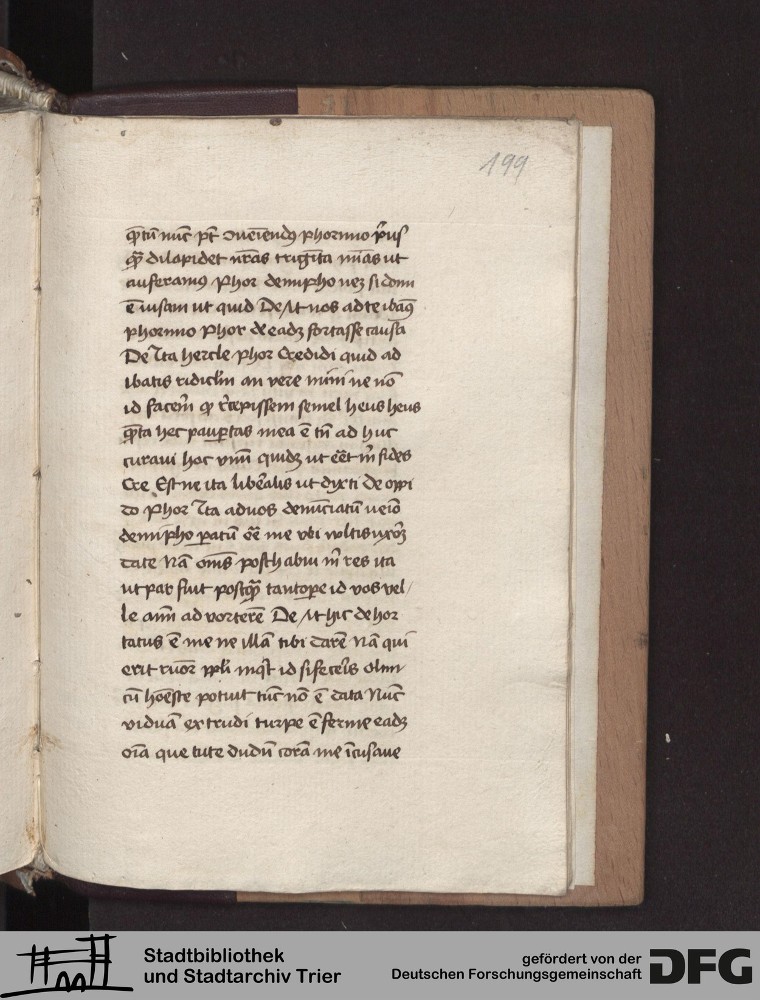 199
qͣtū nūc pt̄ inueiendꝯ phormio pͥus
qͣ dilapidet nr̄as trigīta mīas ut
auferamꝯ Phor demipho neꝫ si domi
ē uisam ut quid De At nos ad te ibaꝯ
phormio Phor de eadꝫ fortasse causa
De Ita hercle Phor Credidi quid ad
ibatis ridiclm̄ an vere mini ne nō
id facerē qͩ recepissem semel heus heus
qͣta hec paupͬtas mea ē tn̄ ad huc
curaui hoc vnū quidꝫ ut eēt m̄ fides
Cre Est ne ita liberalis ut dyxti De oppi
do Phor Ita ad uos denūciatū ueīo
demipho patū eē me vbi vultis uxoꝝ
date Nā om̄s posthabui m̄ res ita
ut par fuit postqͣ tantope id vos vel/
le aīm ad vorterē De At hic dehor
tatus ē me ne illā tibi darē Nā qui
erit rūor ppli inqͭt id si feceris Olim
cū hoēste potuit tūc nō ē data Nūc
viduā extrudi turpe ē ferme eadꝫ
oīa que tute dudū corā me īcusaue
Stadtbibliothek
und Stadtarchiv Trier
gefördert von der
Deutschen Forschungsgemeinschaft
DFG